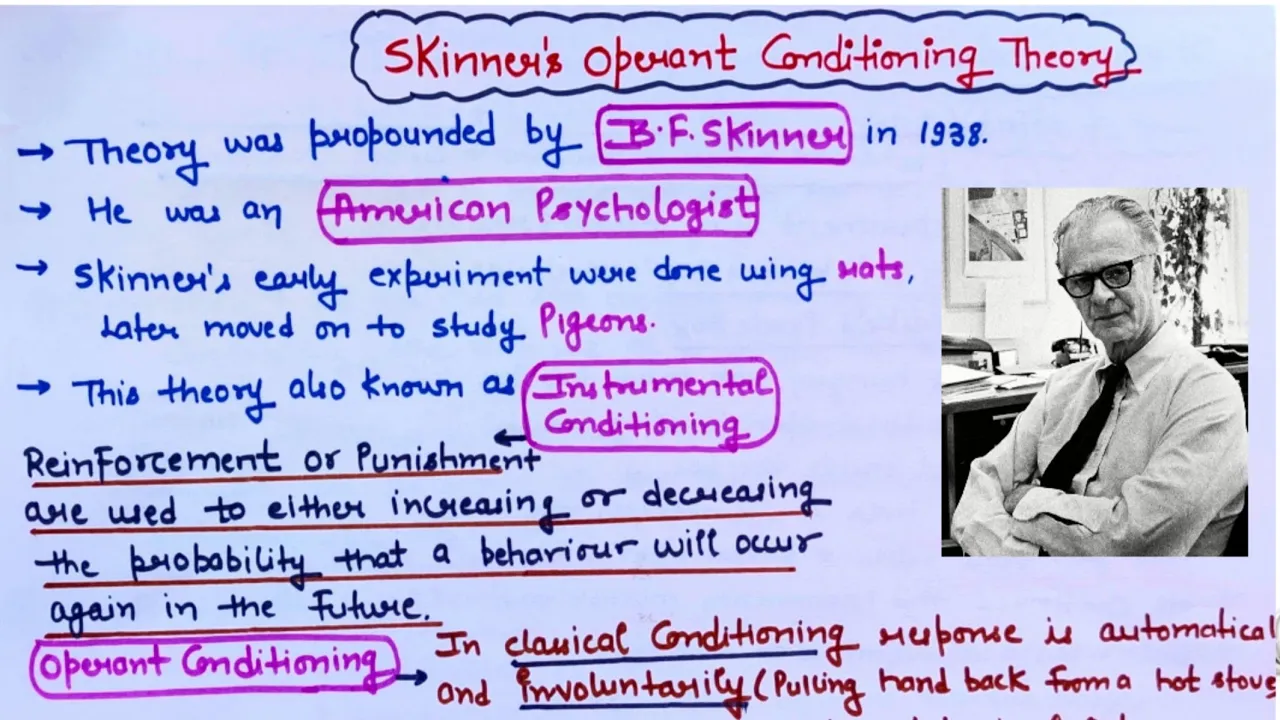 Skinner's Operant Conditioning Theory
→ Theory was propounded by B.F. Skinner in 1938.
→ He was an American Psychologist
→ Skinner's early experiment were done using rats,
Later moved on to study Pigeons.
→ This theory also known as Instrumental
Conditioning
Reinforcement or Punishment
are used to either increasing or decreasing
the probability that a behaviour will occur
again in the Future.
Operant Conditioning → In classical Conditioning response is automatical
and involuntarily (Pulling hand back from a hot stove